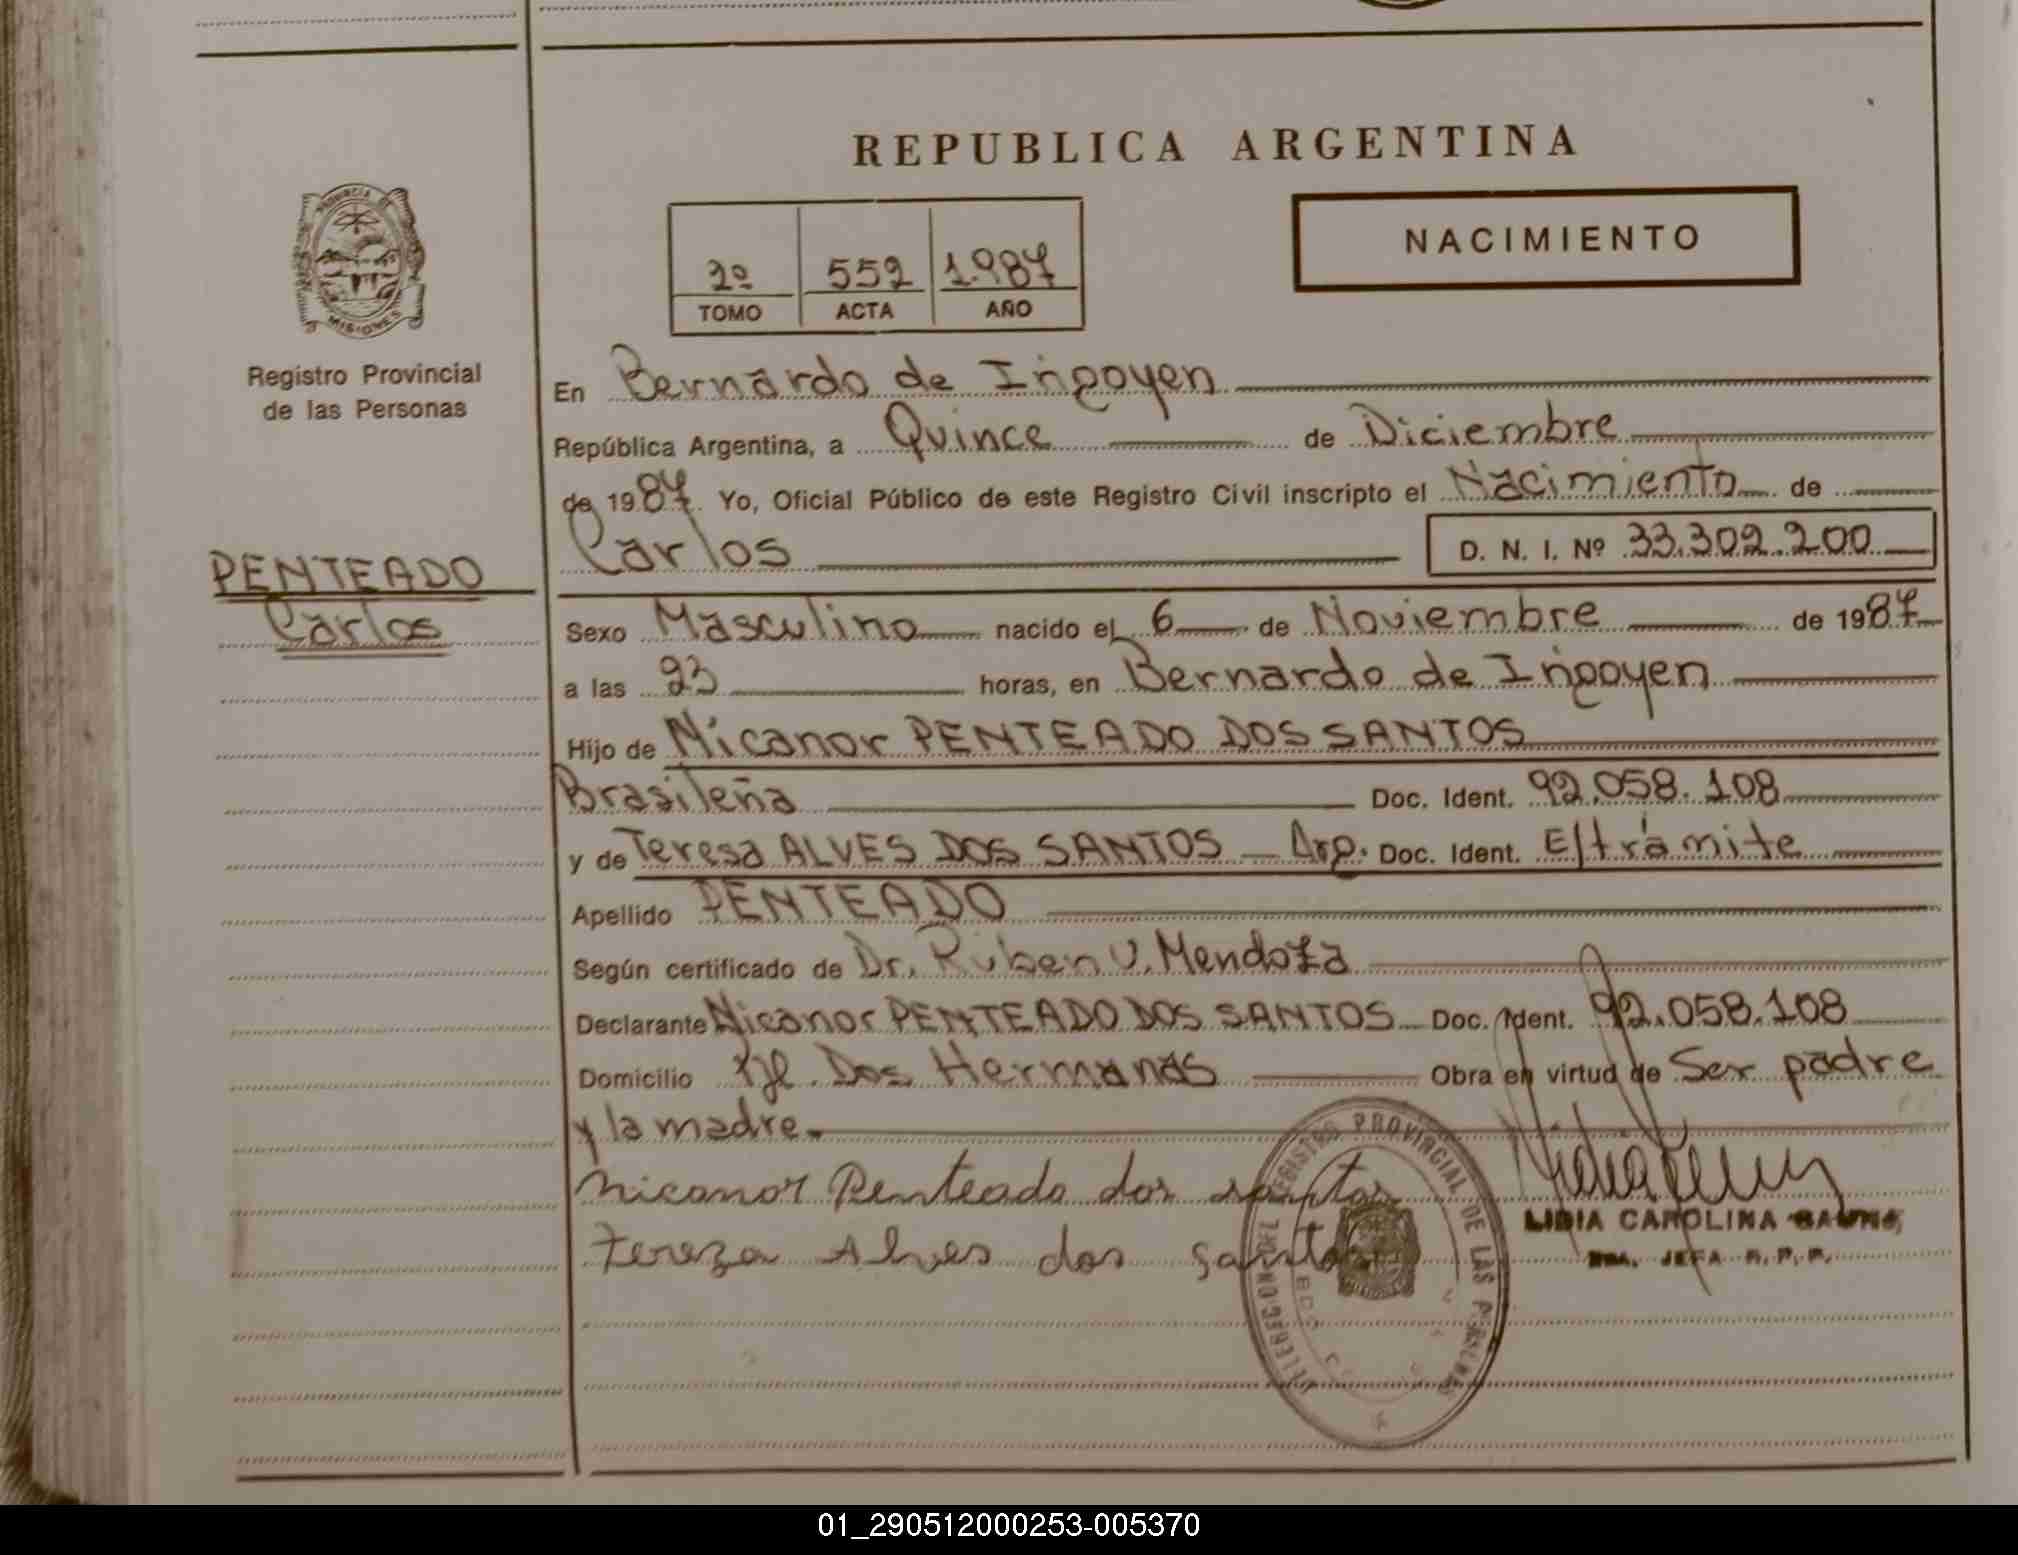 REPUBLICA ARGENTINA
NACIMIENTO
2º 552 1.987
TOMO ACTA AÑO
PROVINCIA DE
MISIONES
Registro Provincial
de las Personas
PENTEADO
Carlos
En Bernardo de Irigoyen
República Argentina, a Quince de Diciembre
de 1987. Yo, Oficial Público de este Registro Civil inscripto el Nacimiento de
Carlos D. N. I. Nº 33.302.200
Sexo Masculino nacido el 6 de Noviembre de 1987
a las 23 horas, en Bernardo de Irigoyen
Hijo de Nicanor PENTEADO DOS SANTOS
Brasileña Doc. Ident. 92.058.108
y de Teresa ALVES DOS SANTOS Arg. Doc. Ident. E/trámite
Apellido PENTEADO
Según certificado de Dr. Ruben V. Mendoza
Declarante Nicanor PENTEADO DOS SANTOS Doc. Ident. 92.058.108
Domicilio Dos Hermanas Obra en virtud de Ser padre
y la madre.
Nicanor Penteado dos santos
Tereza Alves dos Santos
LIDIA CAROLINA
JEFA R. P. P.
REGISTRO PROVINCIAL DE LAS PERSONAS
01_290512000253-005370